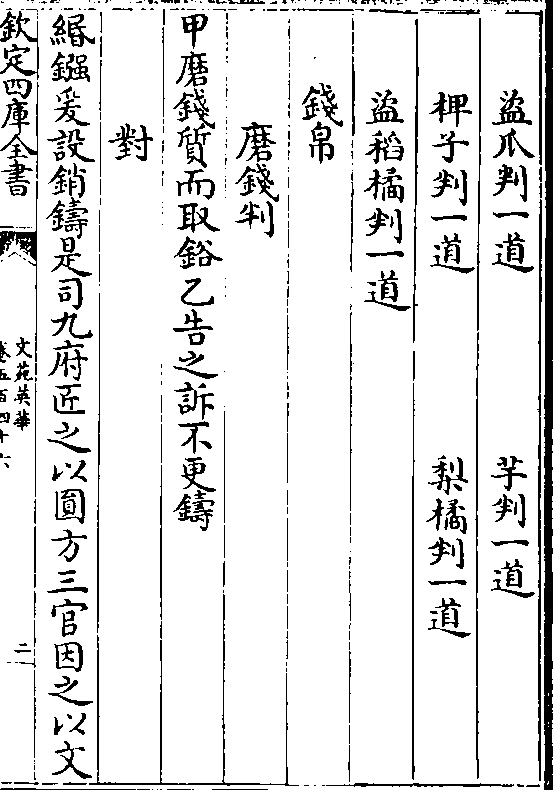 盜瓜判一道　芋判一道
椑子判一道　梨橘判一道
盜稻橘判一道
錢帛
磨錢判
甲磨錢質而取鋊乙告之訴不更鑄
對
緡鏹爰設銷鑄是司九府匠之以圓方三官因之以文
欽定四庫全書
文苑英華
卷五百四十六
二